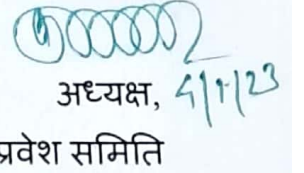 अध्यक्ष, 4/1/23
प्रवेश समिति